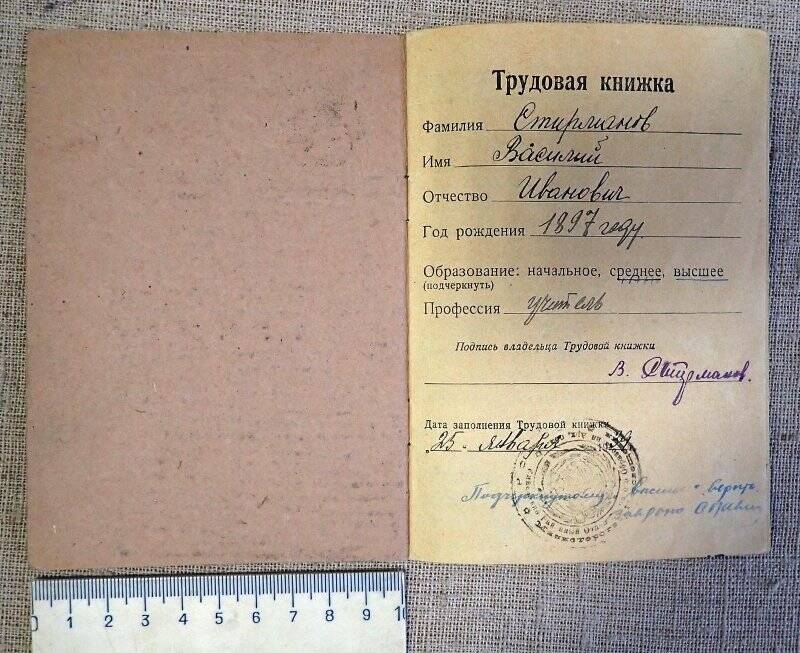 Трудовая книжка
Фамилия Стирманов
Имя Василий
Отчество Иванович
Год рождения 1897 году
Образование: начальное, среднее, высшее
(подчеркнуть)
Профессия учитель
Подпись владельца Трудовой книжки
В. Стирманов.
Дата заполнения Трудовой книжки
25 - января
Подчеркнутому верить
0 1 2 3 4 5 6 7 8 9 10